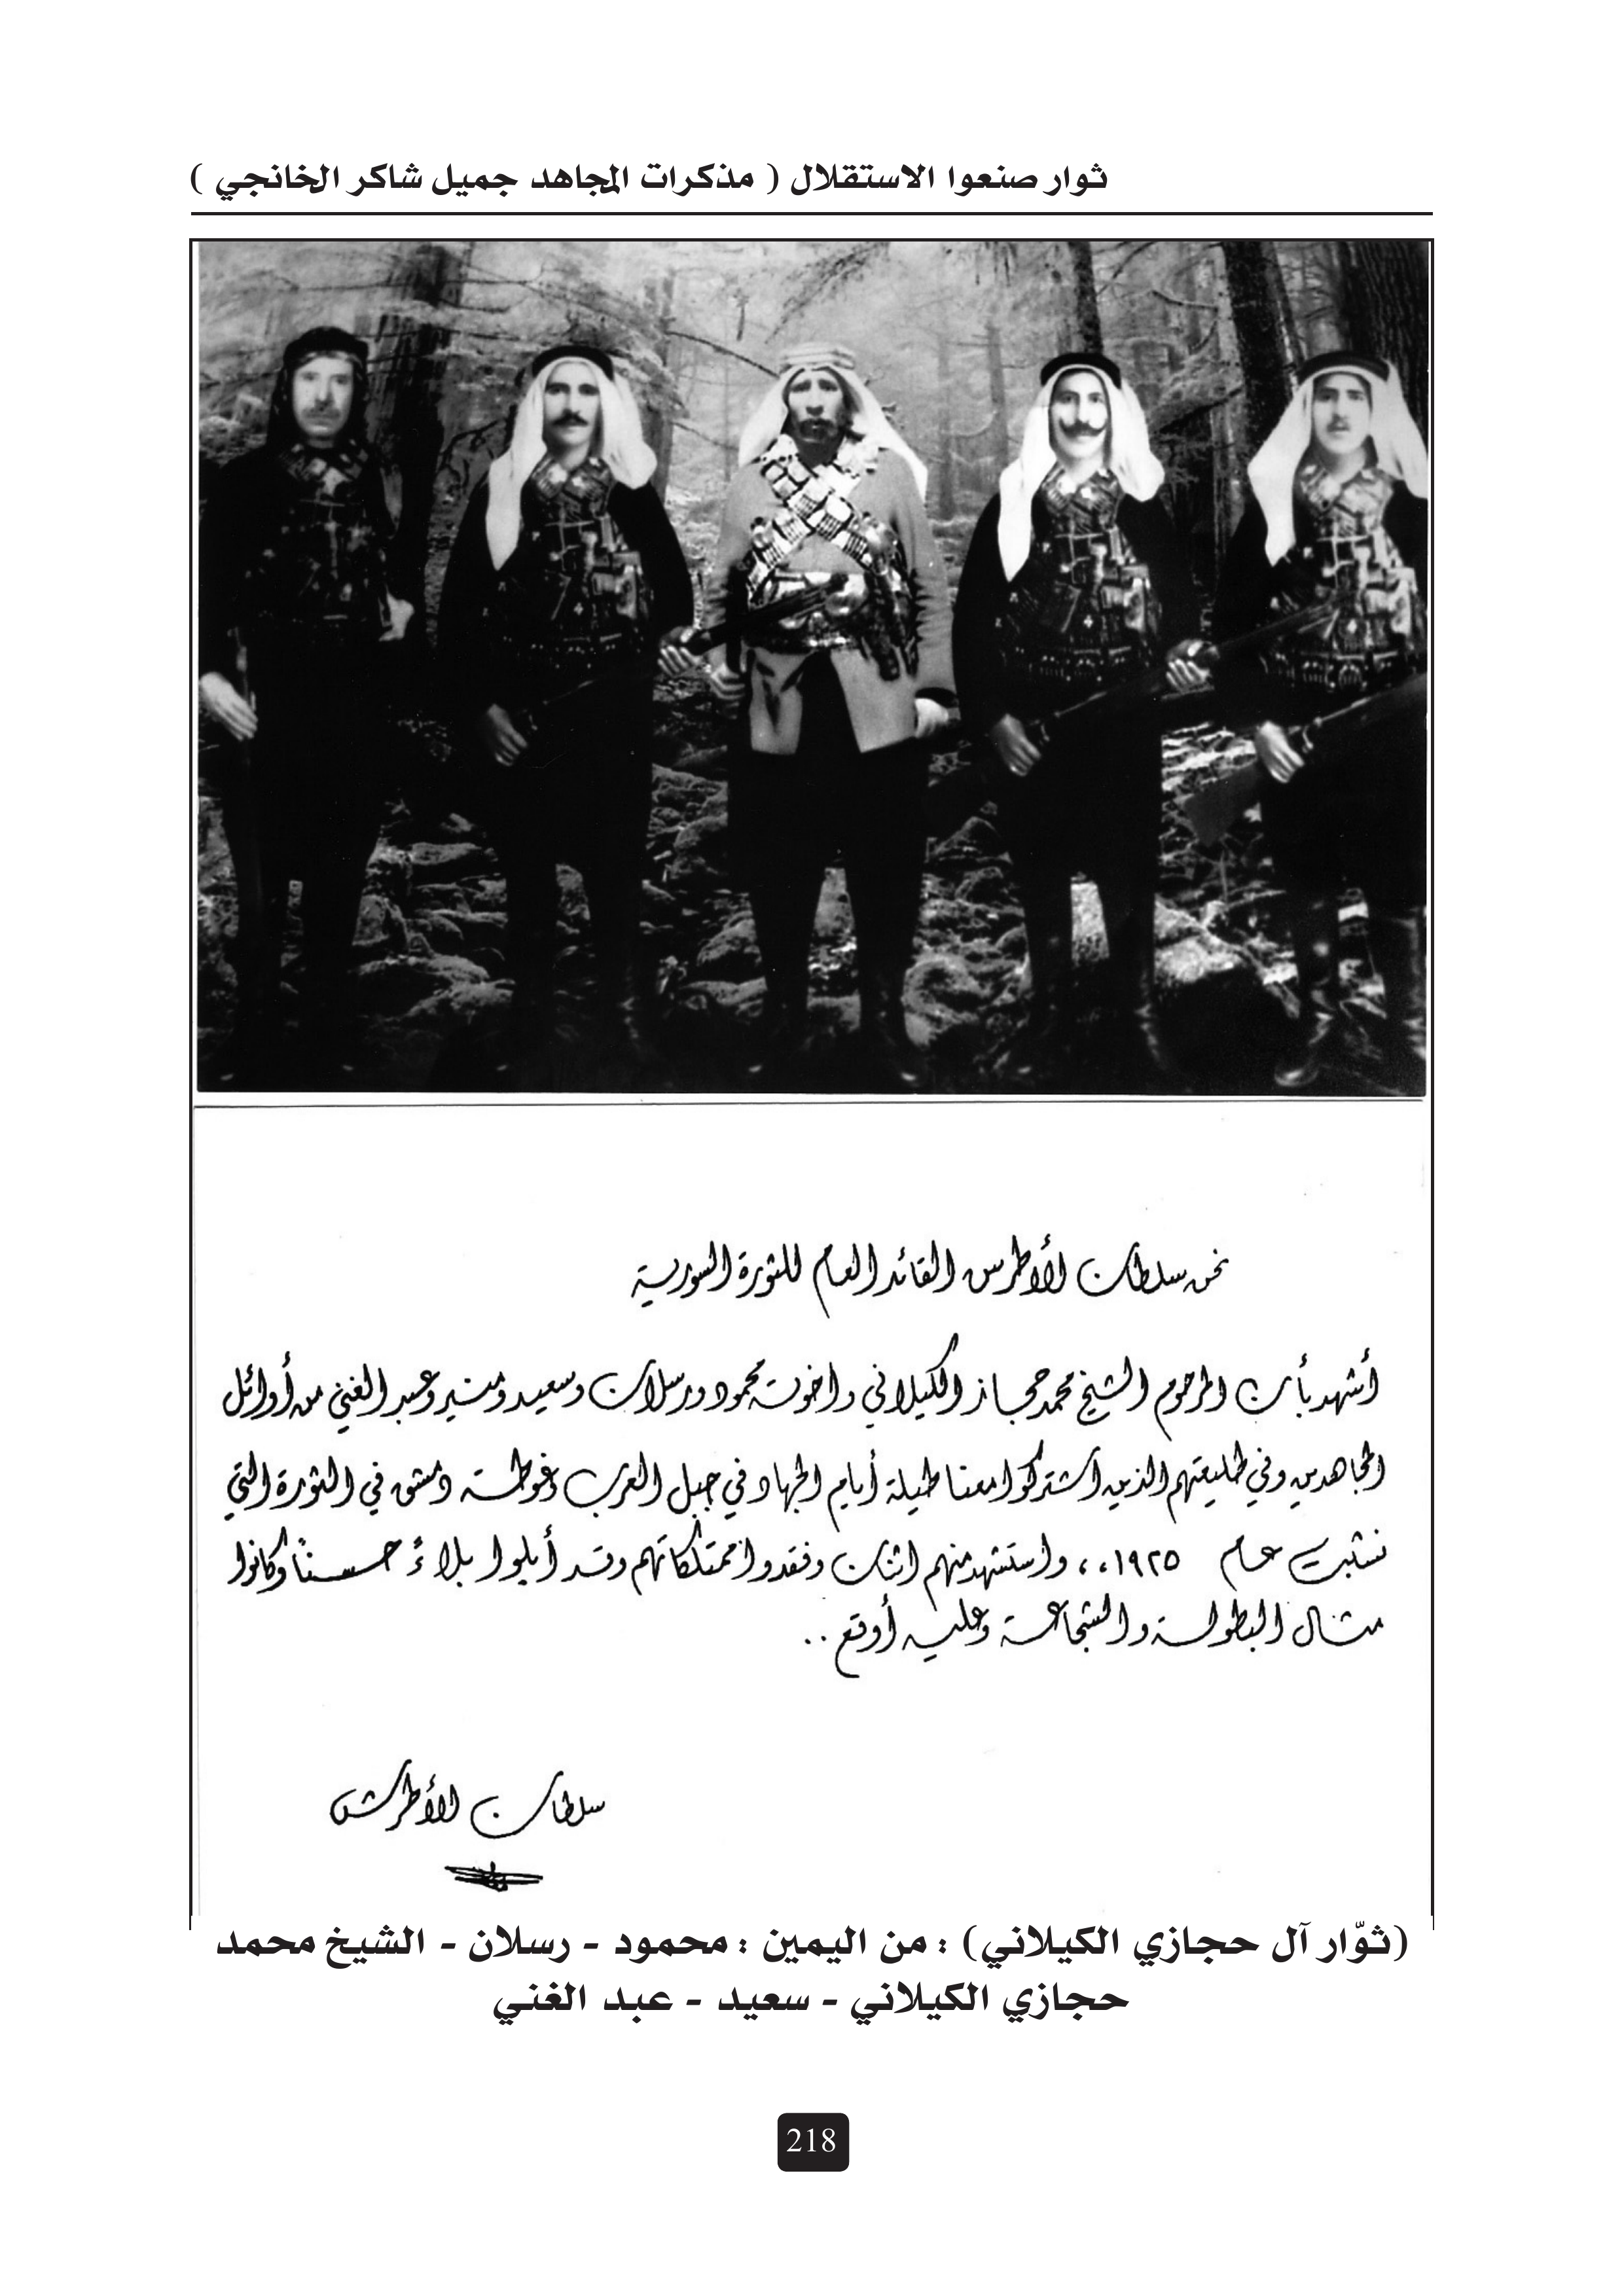 ثوار صنعوا الاستقلال ( مذكرات المجاهد جميل شاكر الخانجي )
نحن سلطان الأطرش القائد العام للثورة السورية
أشهد بأن المرحوم الشيخ محمد حجاز الكيلاني واخوته محمود ورسلان وسعيد ومنير وعبد الغني من أوائل
المجاهدين وفي طليعتهم الذين اشتركوا معنا طيلة أيام الجهاد في جبل العرب وغوطة دمشق في الثورة التي
نشبت عام ١٩٢٥،، واستشهد منهم اثنان وفقدوا ممتلكاتهم وقد أبلوا بلاءً حسناً وكانوا
مثال البطولة والشجاعة وعليه أوقع ..
سلطان الأطرش
(ثوّار آل حجازي الكيلاني) : من اليمين : محمود - رسلان - الشيخ محمد
حجازي الكيلاني - سعيد - عبد الغني
218